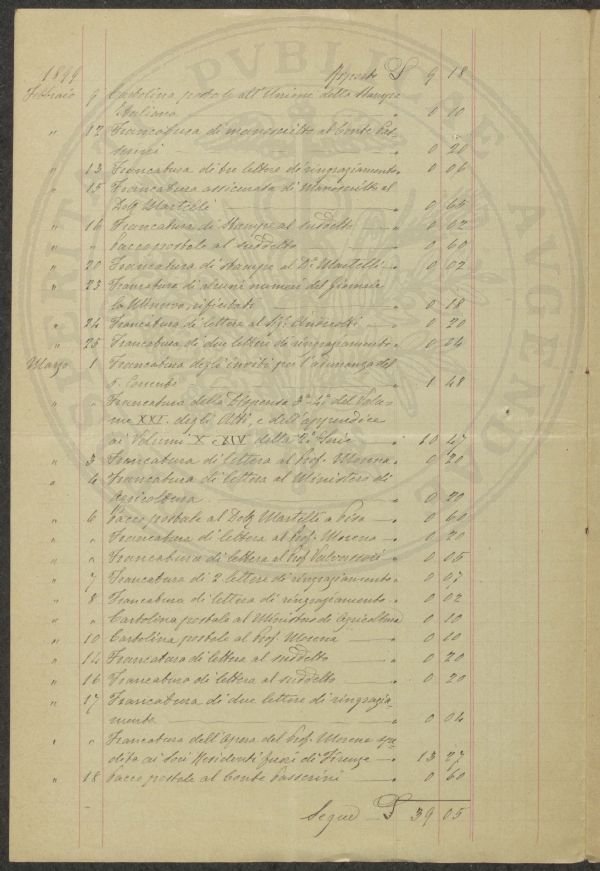 1899 Riporto £ 9 18
Febbraio 9 Cartolina postale all'Unione della Stampa
Italiana " 0 10
" 12 Francatura di manoscritto al Conte Pas-
serini " 0 20
" 13 Francatura di tre lettere di ringraziamento " 0 06
" 15 Francatura assicurata di Manoscritto al
Dott. Martelli " 0 65
" 16 Francatura di Stampe al suddetto " 0 02
" " Pacco postale al suddetto " 0 60
" 20 Francatura di stampe al Dr. Martelli " 0 02
" 23 Francatura di alcuni numeri del Giornale
la Minerva, rifiutati " 0 18
" 24 Francatura di lettera al Sig. " 0 20
" 25 Francatura di due lettere di ringraziamento " 0 04
Marzo 1 Francatura degli inviti per l'adunanza del
5. Corrente " 1 48
" " Francatura della Dispensa 3a-4a del Volu-
me XXI. degli Atti, e dell'appendice
ai Volumi X e XIV della 2a Serie " 10 47
" 3 Francatura di lettera al Prof. Morena " 0 20
" 4 Francatura di lettera al Ministero di
Agricoltura " 0 20
" 6 Pacco postale al Dott. Martelli a Pisa " 0 60
" " Francatura di lettera al Prof. Morena " 0 20
" " Francatura di lettera al Prof. Valvassori " 0 05
" 7 Francatura di 2 lettere di ringraziamento " 0 07
" 8 Francatura di lettera di ringraziamento " 0 02
" " Cartolina postale al Ministero di Agricoltura 0 10
" 10 Cartolina postale al Prof. Morena " 0 10
" 14 Francatura di lettera al suddetto " 0 20
" 16 Francatura di lettera al suddetto " 0 20
" 17 Francatura di due lettere di ringrazia-
mento " 0 04
" " Francatura dell'Opera del Prof. Morena spe-
dita ai Soci Residenti fuori di Firenze " 13 27
" 18 Pacco postale al Conte Passerini " 0 60
Segue £ 39 05